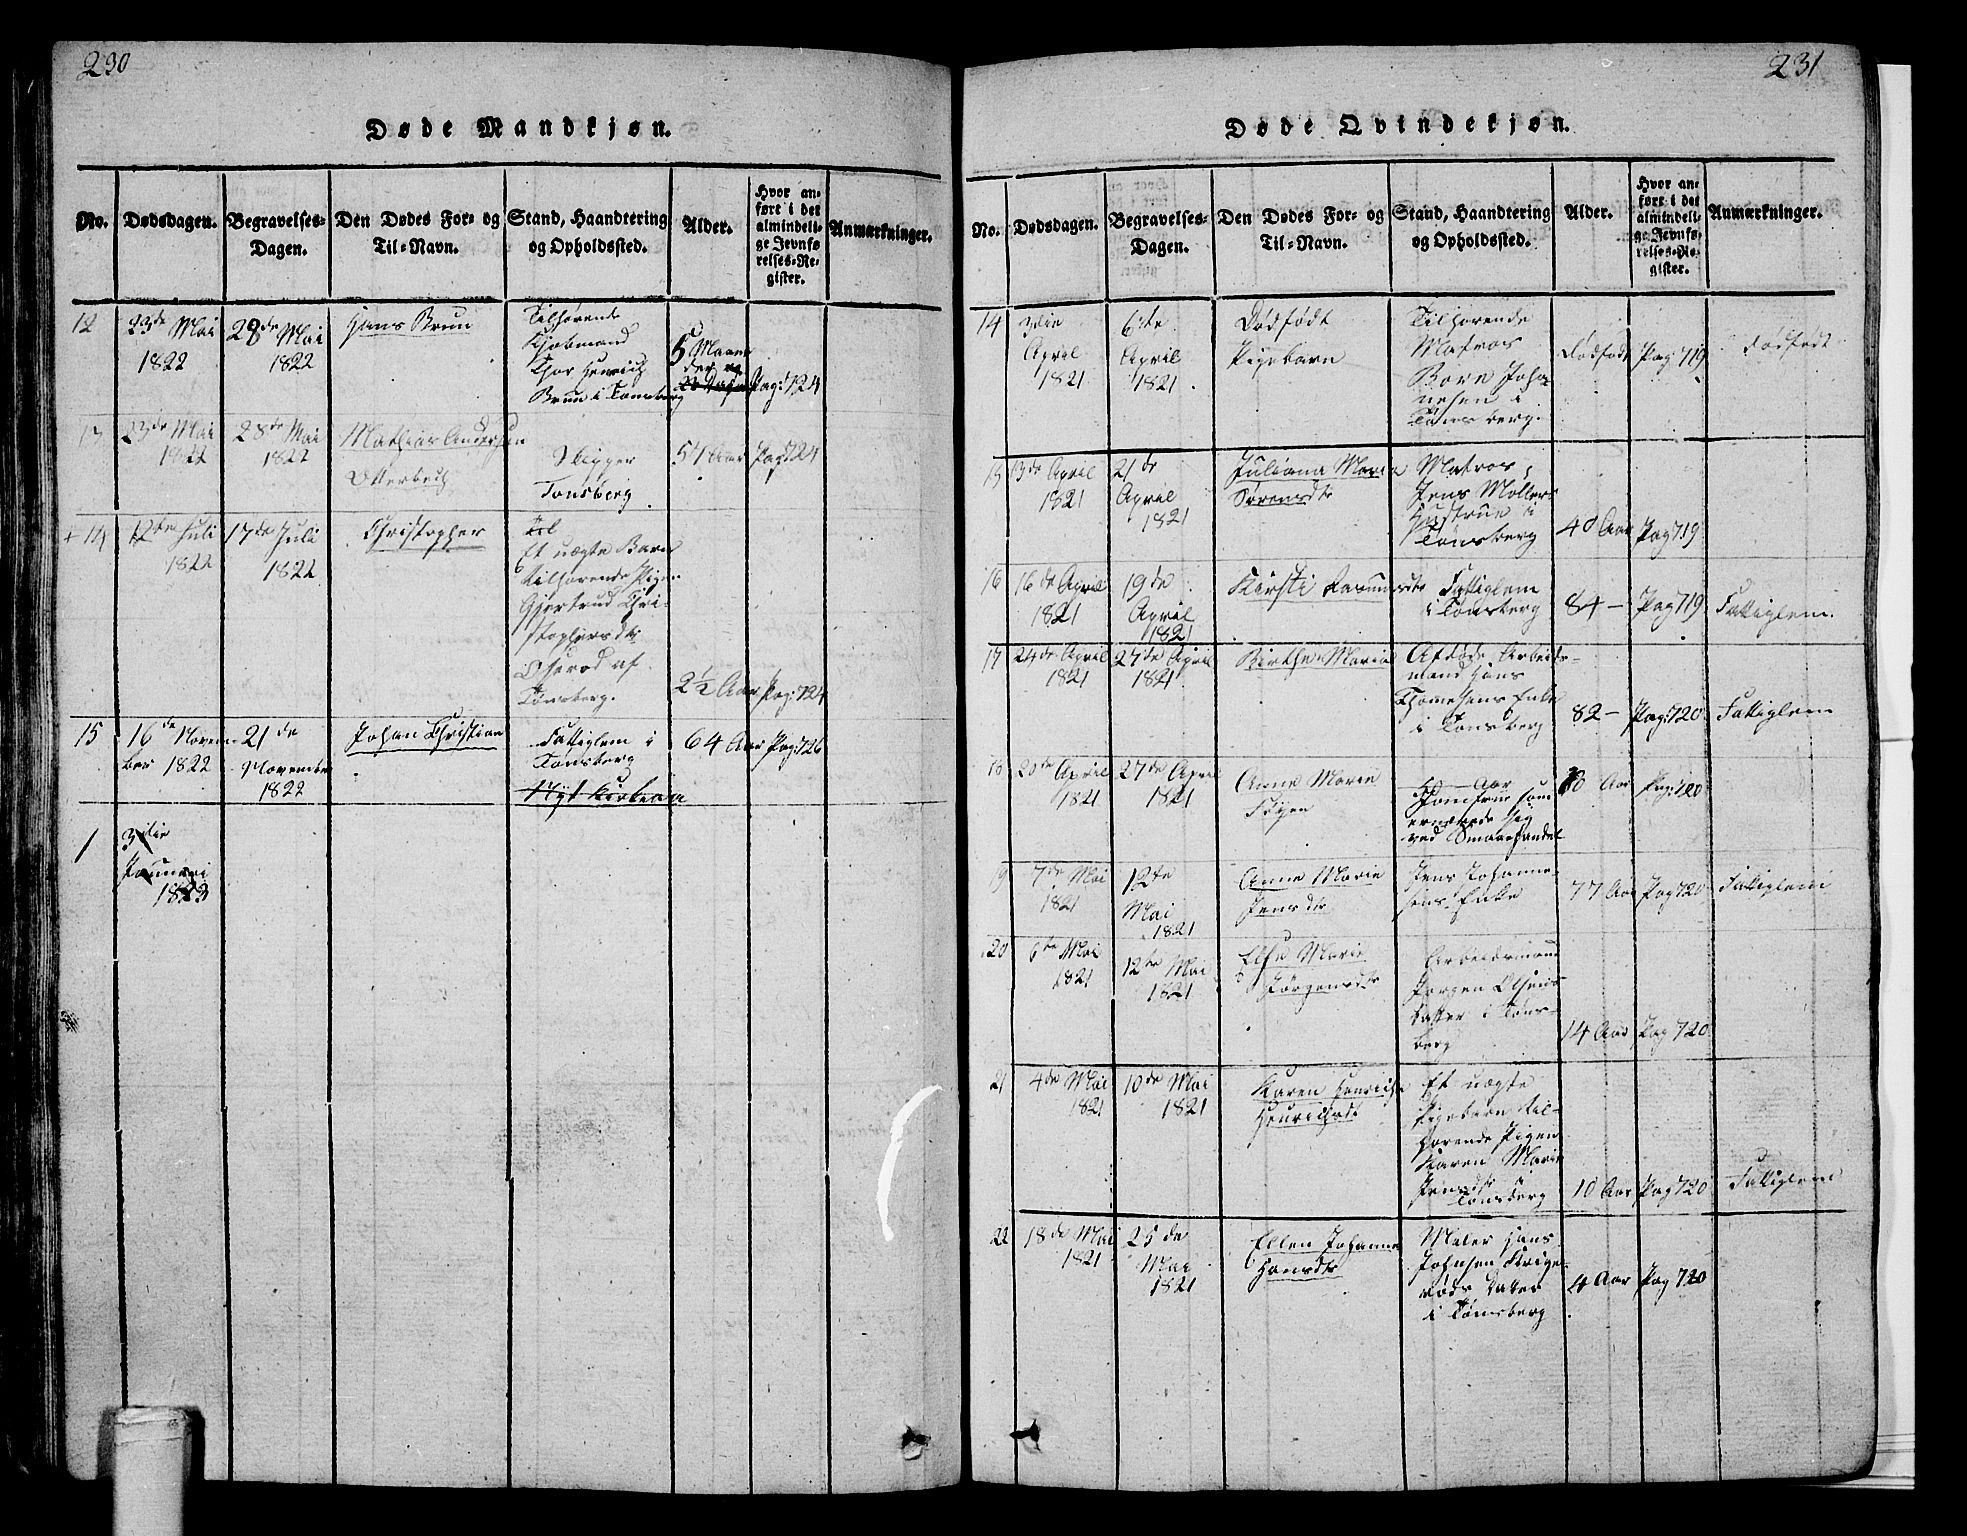 230
Døde Mandkjøn.
No.
Dødsdagen.
Begravelses-
Dagen.
Den Dødes For- og
Til-Navn.
Stand, Haandtering
og Opholdssted.
Alder.
Hvor an-
ført i det
almindeli-
ge Jevnfø-
relses-Re-
gister.
Anmærkninger.
12
23de Mai
1822
28de Mai
1822
Hans Brun
Tilhørende
Kjøbmand
Thor Henrich
Brun i Tønsberg
5 Maane
der
Pag: 724
13
23de Mai
1822
28de Mai
1822
Mathias Andersen
Otterbech
Skipper
Tonsberg
54 Aar
Pag: 724
+ 14
12te Juli
1822
17de Juli
1822
Christopher
Til
Et uægte Barn
tilhørende Pigen
Gjertrud Chri-
stophersdtr
Oserod af
Tønsberg.
2½ Aar
Pag: 724
15
16de Novem-
ber 1822
21de
November
1822
Johan Christian
Fattiglem i
Tønsberg
64 Aar
Pag: 726
1
3die
Januari
1823
231
Døde Qvindekjøn.
No.
Dødsdagen.
Begravelses-
Dagen.
Den Dødes For- og
Til-Navn.
Stand, Haandtering
og Opholdssted.
Alder.
Hvor an-
ført i det
almindeli-
ge Jevnfø-
relses-Re-
gister.
Anmærkninger.
14
3die
April
1821
6te
April
1821
Dødfødt
Pigebarn
Tilhørende
Matros
Bore Joha-
nesen i
Tønsberg.
Dødfødt
Pag: 719
Dødfødt
15
13de April
1821
21de
April
1821
Juliana Maria
Sørensdtr
Matros
Jens Møllers
Hustrue i
Tønsberg
40 Aar
Pag 719
16
16de April
1821
19de
April
1821
Kirsti Rasmusdtr
Fattiglem
i Tønsberg
84 —
Pag 719
Fattiglem.
17
24de April
1821
27de April
1821
Birthe Maria
Afdøde Arbeids-
mand Hans
Thomesens Enke
i Tønsberg
82 —
Pag: 720
Fattiglem
18
20de April
1821
27de April
1821
Anne Marie
Foyen
Jomfrue som
ernærede sig
ved Smaahandel
Aar
Pag: 720
19
7de Mai
1821
12te
Mai
1821
Anne Marie
Jensdtr
Jens Johanne-
sens Enke
77 Aar
Pag 720
Fattiglem
20
6te Mai
1821
12te Mai
1821
Else Marie
Jørgensdtr
Arbeidsmand
Jørgen Olsens
Datter i Tøns-
berg
14 Aar
Pag 720
21
4de Mai
1821
10de Mai
1821
Karen Henriche
Henrichsdt
Et uægte
Pigebarn til-
hørende Pigen
Karen Marie
Jensdtr i
Tønsberg
10 Aar
Pag 720
Fattiglem
22
18de Mai
1821
25de
Mai
1821
Ellen Johanne
Hansdtr
Maler Hans
Johnsen Krige-
røds Datter
i Tønsberg
4 Aar
Pag 720